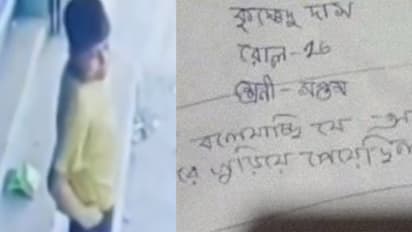 কৃষ্ণেন্দু দাস
রোল-26
শ্রেণী - সপ্তম
বলে যাচ্ছি যে
কুড়িয়ে পেয়েছিল